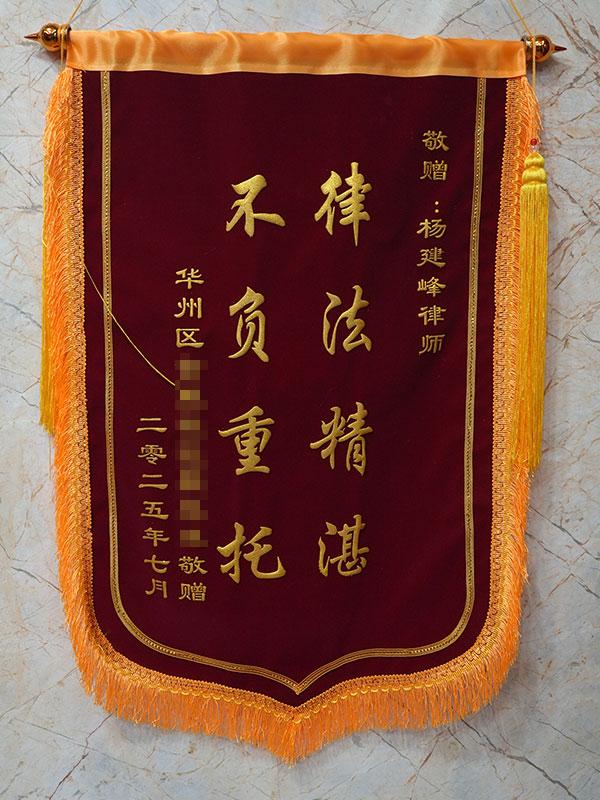 敬赠：杨建峰律师
律法精湛
不负重托
华州区
敬赠
二零二五年七月